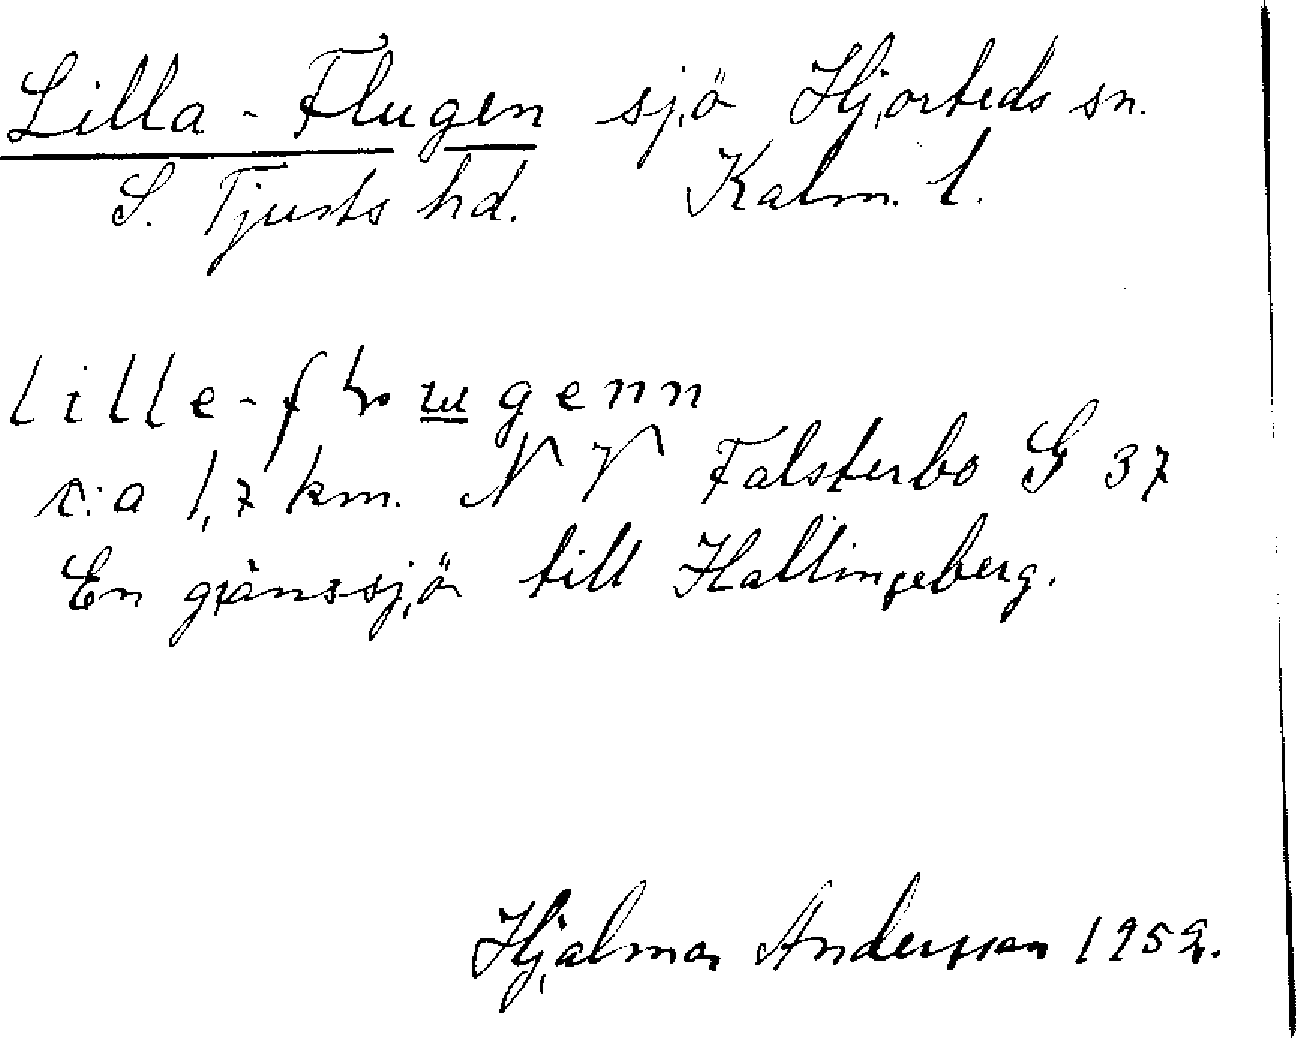 Lilla-Flugen sjö Hjorteds sn.
S. Tjusts hd. Kalm. l.
lille-flugenn
c:a 1,7 km. NV Falsterbo G 37
En gränssjö till Hallingeberg.
Hjalmar Andersson 1952.